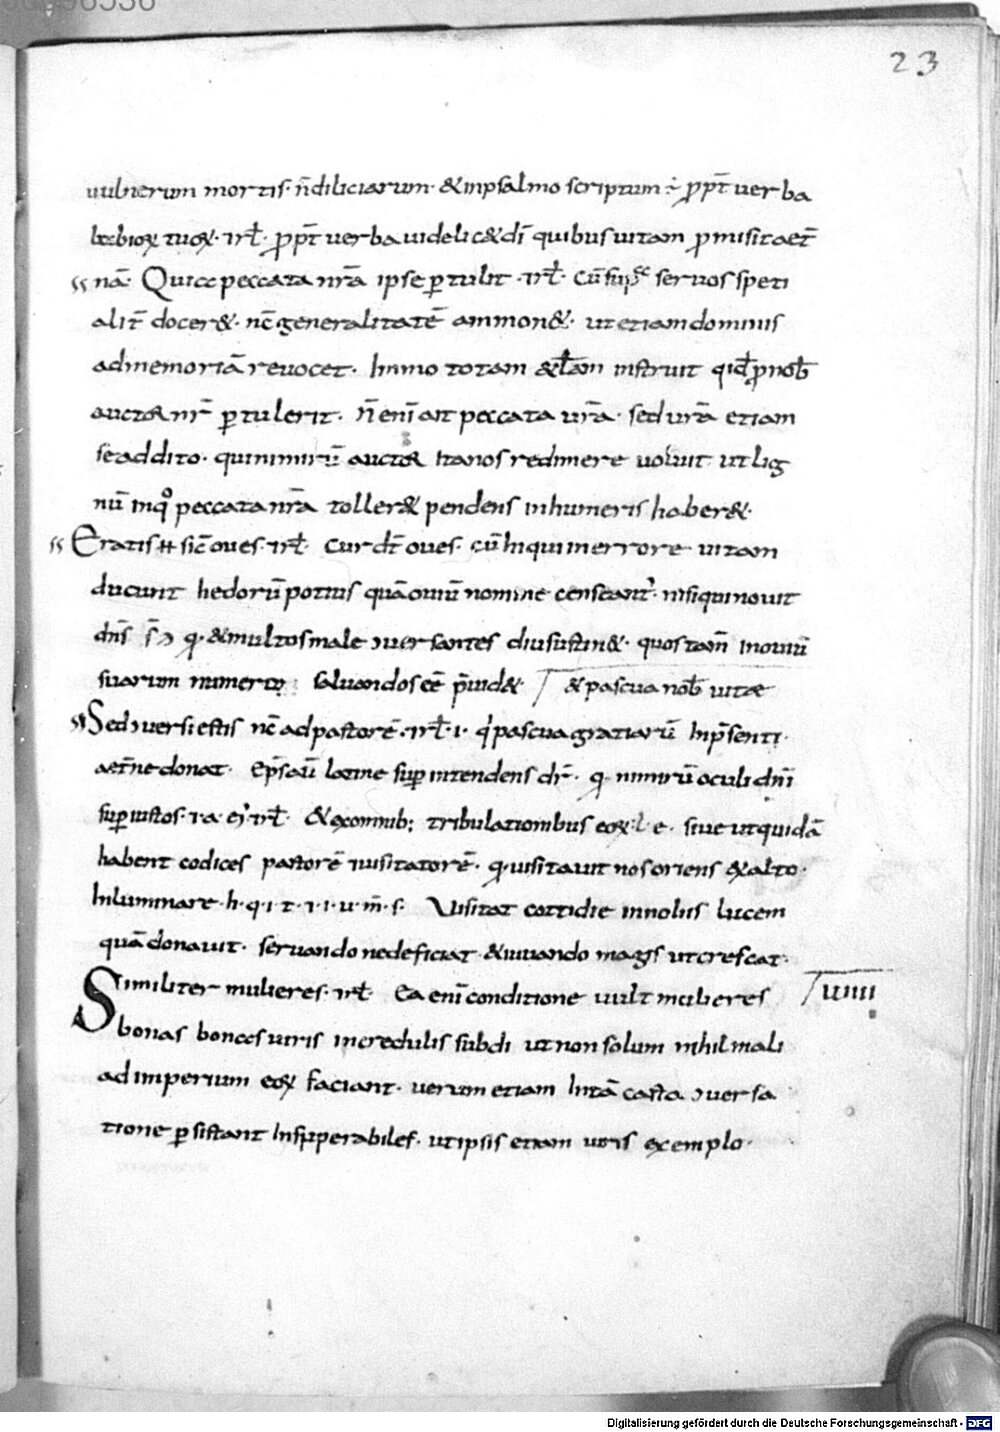 23
uulnerum mortis· n̄ diliciarum· & in psalmo scriptum ÷ ꝓpt̄ uerba
labioꝝ tuoꝝ· rł· ꝓpt̄ uerba uidelic& dī quibus uitam promisit aet̄
nā· Qui peccata nr̄a ipse ꝑtulit· rł· Cū sup̄ seruos speti
alit̄ docer&· nc̄ generalitatē ammon&· ut etiam dominis
ad memoriā reuocet· Immo totam &ct̄am instruit qid ꝓ nob̄
auctor nr̄ ꝑtulerit· n̄ enī ait peccata ur̄a· sed ur̄a etiam
se addito· quinimirū auctor ita nos redimere uoluit ut lig
nū in qͦ peccata nr̄a toller& pendens in humeris haber&·
Eratis H sic̄ oues· rł· Cur dr̄ oues· cū hi qui in errore uitam
ducunt hedorū potius quā ouiū nomine censeant᷑· nisi qui nouit
dn̄s q· & multos male ɔuersantes diu sustin&· quos tam̄ in ouiū
suarum numero saluandos eē p̄uid& & pascua nob̄ uitae
Sed ɔuersi estis nc̄ ad pastorē· rł· i· q pascua gratiarū In p̄senti·
aet̄ne donat· ep̄s aū latine suꝑintendens dr̄· q· nimirū oculi dn̄i
suꝑ iustos· & a· ei· rł· & ex omnib; tribulationibus eoꝝ· l· e· siue ut quidā
habent codices pastorē & uisitatorē· q· uisitauit nos oriens ex alto·
Inluminare· h· q· i· t· & i· u· m̄· s· Uisitat cottidie in nobis lucem
quā donauit· seruando ne deficiat & iuuando magis ut crescat·
Similiter mulieres· rł· Ea enī conditione uult mulieres
Tuīīī
bonas bonis uiris incredulis subdi ut non solum nihil mali
ad imperium eoꝝ faciant· uerum etiam In tā casta ɔuersa
tione ꝑsistant Insuperabiles· ut ipsis etiam uiris exemplo·
Digitalisierung gefördert durch die Deutsche Forschungsgemeinschaft - DFG